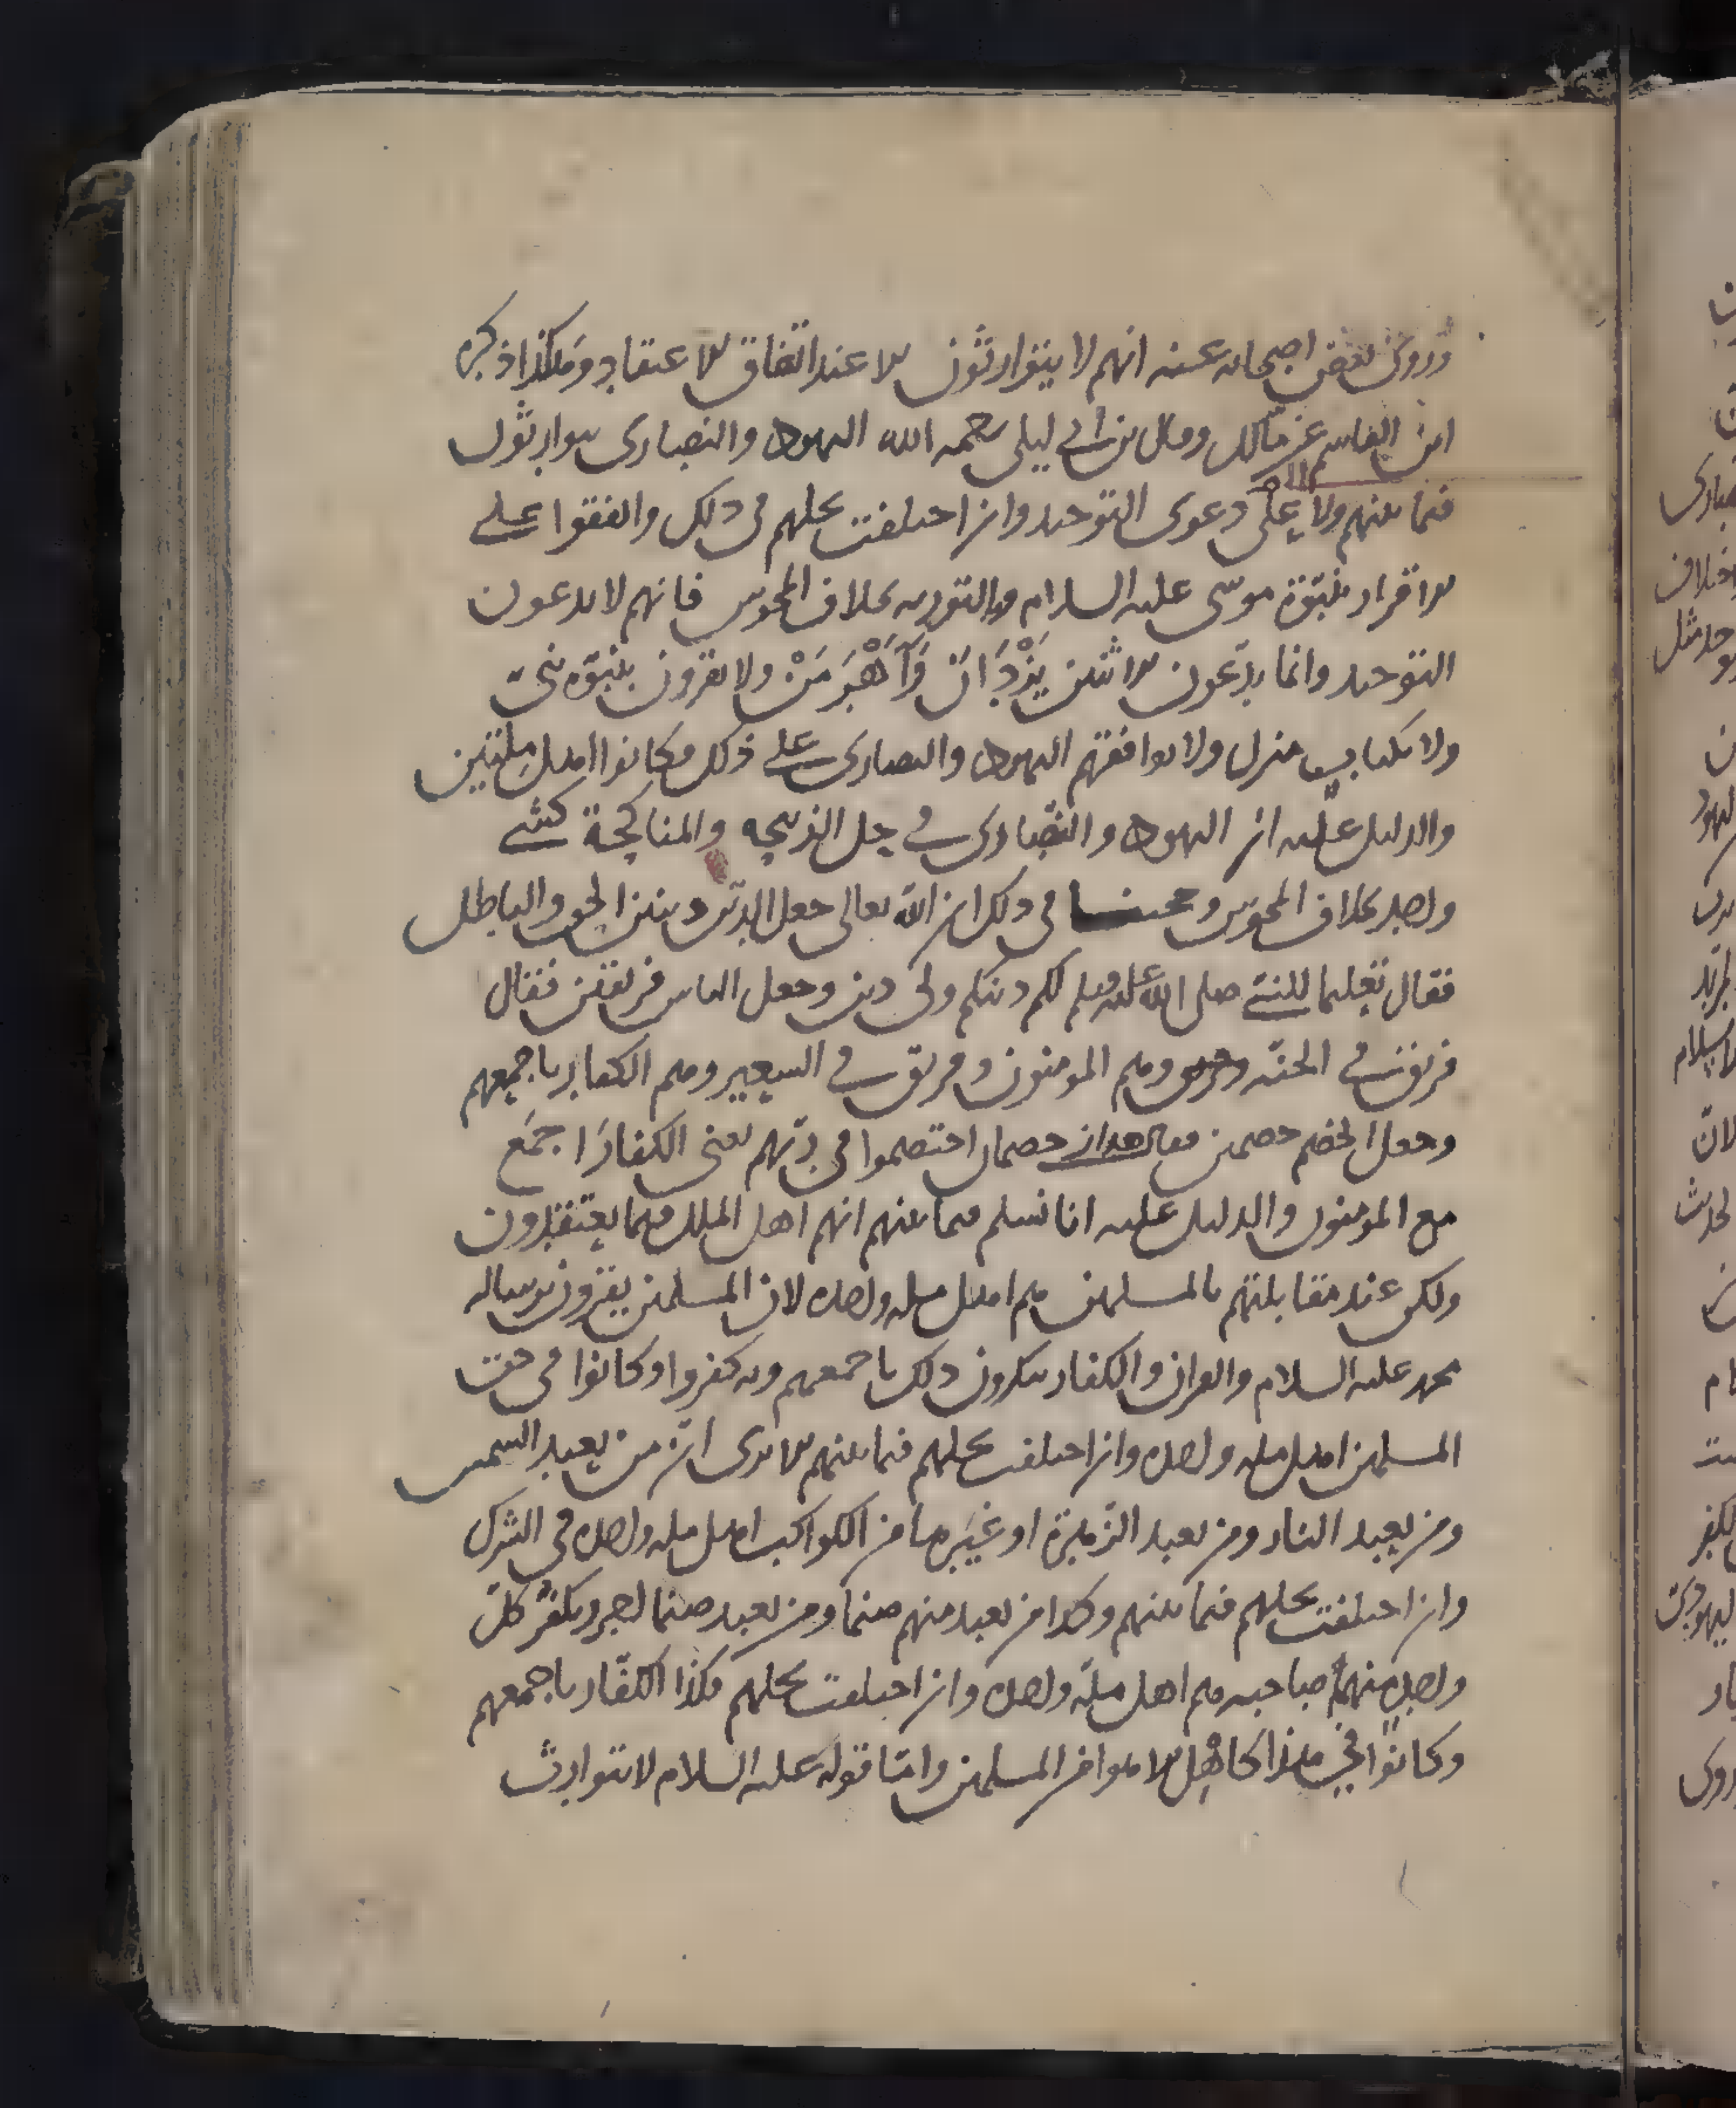 وروى بعض اصحابه عنه انهم لا يتوارثون الا عند اتفاق الاعتقاد وهكذا ذكره
ابن القاسم عن مالك وقال بن ابي ليلى رحمه الله اليهود والنصارى يتوارثون
فيما بينهم ولا على دعوى التوحيد وان اختلفت نحلهم في ذلك واتفقوا على
الاقرار بنبوة موسى عليه السلام وبالتورية بخلاف المجوس فانهم لا يدعون
التوحيد وانما يدّعون الاثنين يَزْدَانَ وَآهْرَمَنْ ولا يقرون بنبوة نبيّ
ولا بكتاب منزل ولا يوافقهم اليهود والنصارى على ذلك فكانوا اهل ملتين
والدليل عليه ان اليهود والنصارى في حل الذبيحة والمناكحة كشيء
واحد بخلاف المجوس وحجتنا في ذلك ان الله تعالى جعل الدين دينين الحق والباطل
فقال تعليما للنبيّ صلى الله عليه وسلم لكم دينكم ولي دين وجعل الناس فريقين فقال
فريق في الجنة وهم المومنون وفريق في السعير وهم الكفار باجمعهم
وجعل الخصم خصمين فقال هذان خصمان اختصموا في ربّهم يعني الكفار اجمع
مع المومنون والدليل عليه انا نسلم فيما بينهم انهم اهل الملل فيما يعتقدون
ولكن عند مقابلتهم بالمسلمين هم اهل ملة واحدة لان المسلمين يقرون برسالة
محمد عليه السلام والقران والكفار ينكرون ذلك باجمعهم وبه كفروا وكانوا في حق
المسلمين اهل ملة واحدة وان اختلفت نحلهم فيما بينهم الا ترى انّ من يعبد الشمس
ومن يعبد النار ومن يعبد الزهرة او غيرها من الكواكب اهل ملة واحدة في الشرك
وان اختلفت نحلهم فيما بينهم وكذا من يعبد منهم صنما ومن يعبد صنما اخر ويكفّر كلّ
واحد منهم صاحبه هم اهل ملّة واحدة وان اختلفت نحلهم فكذا الكفّار باجمعهم
وكانوا في هذا كاهل الاهوا من المسلمين وامّا قوله عليه السلام لا يتوارث